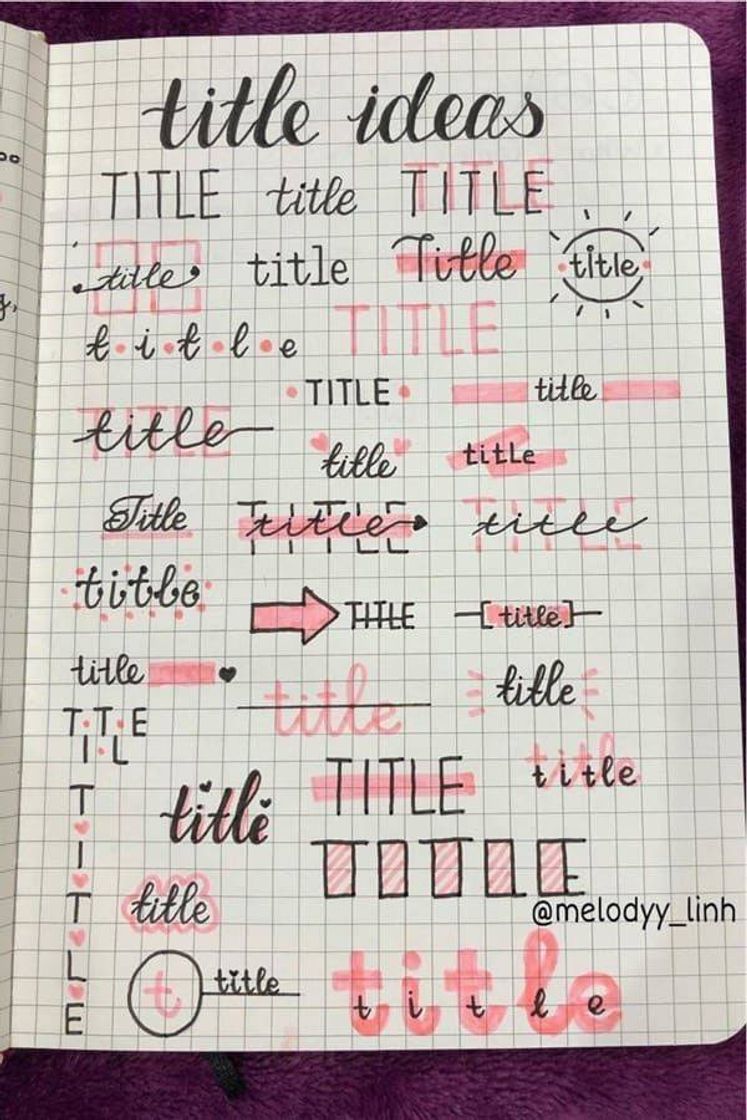 title ideas
TITLE title TITLE
title title Title title
t•i•t•l•e TITLE
•TITLE• title
TITLE title
title title
Title TITLE title TITLE title
title TITLE [title]
title title title
TITLE
title TITLE title title
TITLE
T
I
T
L
E
title
@melodyy_linh
t title title t i t l e